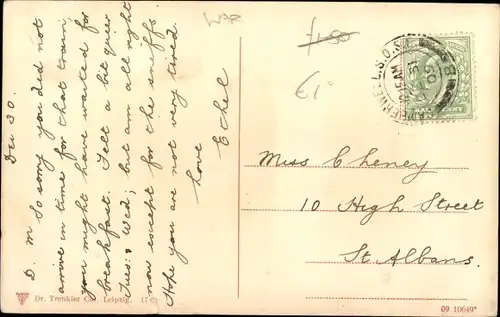 Dec 30.
D. M So sorry you did not
arrive in time for that train
you might have waited for
breakfast. Felt a bit quier
Tues: & Wed; but am all right
now except for the sniffs
Hope you are not very tired.
Love
Ethel
WAR
£1.50
€1
Miss Cheney
10 High Street
St Albans.
Dr. Trenkler Co., Leipzig.
09 10649*